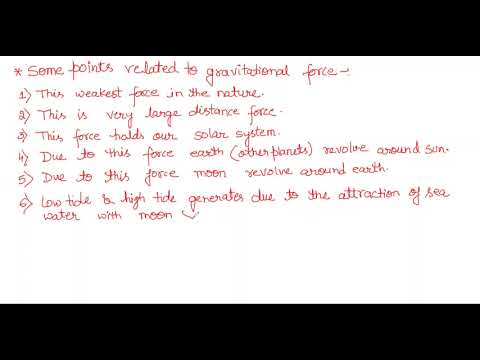 * Some points related to gravitational force -:
1) This weakest force in the nature.
2) This is very large distance force.
3) This force holds our solar system.
4) Due to this force earth (other planets) revolve around sun.
5) Due to this force moon revolve around earth.
6) Low tide & high tide generates due to the attraction of sea
water with moon